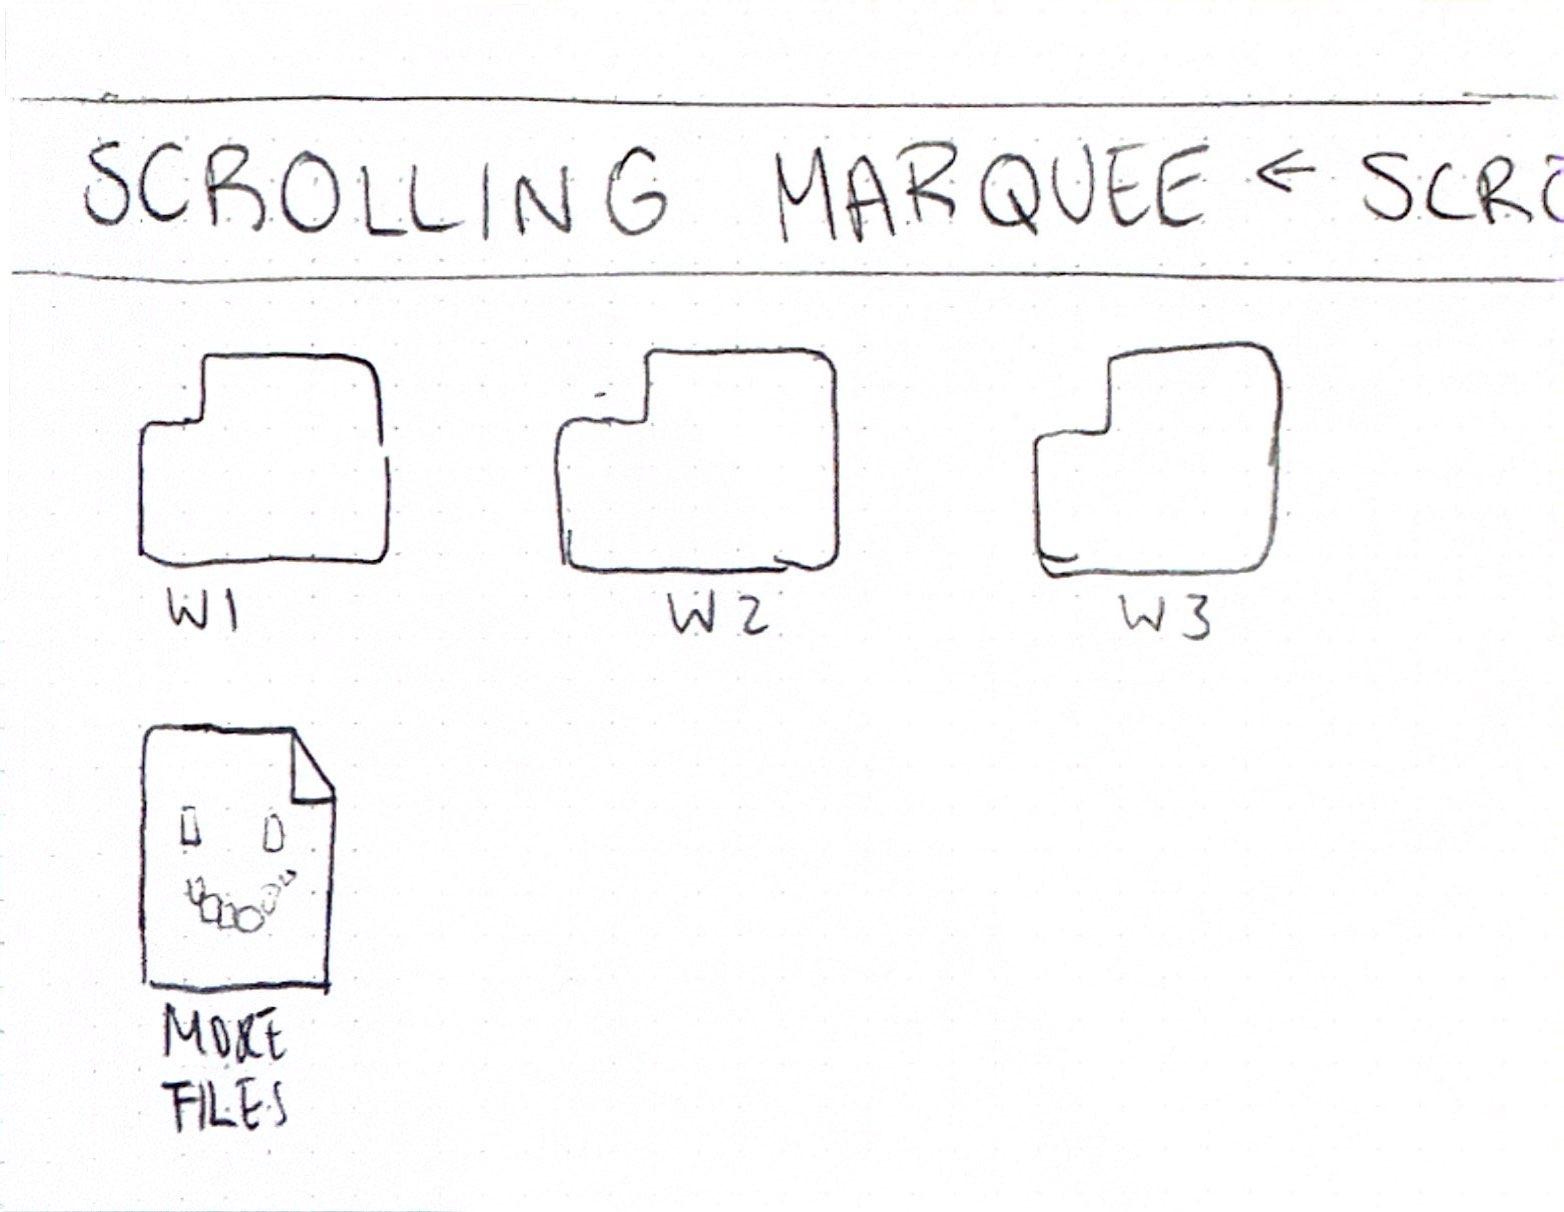 SCROLLING MARQUEE ← SCRO
W1
W2
W3
MORE
FILES